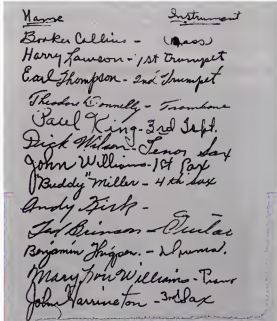 Name Instrument
Booker Collins - (Bass)
Harry Lawson - 1st Trumpet
Earl Thompson - 2nd Trumpet
Theodore Donnelly - Trombone
Paul King - 3rd Tpt.
Dick Wilson - Tenor Sax
John Williams - 1st Sax
"Buddy" Miller - 4th sax
Andy Kirk -
Ted Brinson - Guitar
Benjamin Thigpen - Drums.
Mary Lou Williams - Piano
John Harrington - 3rd Sax